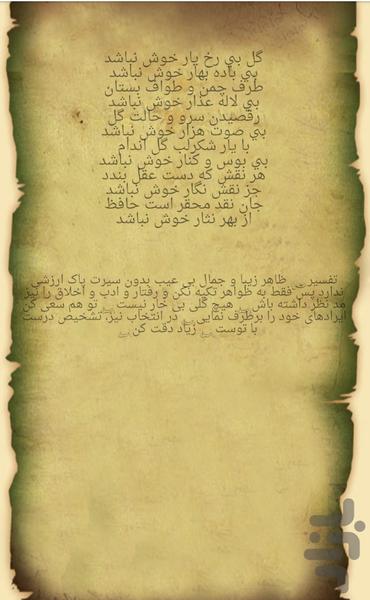 گل بي رخ يار خوش نباشد
بي باده بهار خوش نباشد
طرف چمن و طواف بستان
بي لاله عذار خوش نباشد
رقصيدن سرو و حالت گل
بي صوت هزار خوش نباشد
با يار شکرلب گل اندام
بي بوس و کنار خوش نباشد
هر نقش که دست عقل بندد
جز نقش نگار خوش نباشد
جان نقد محقر است حافظ
از بهر نثار خوش نباشد
تفسیر ظاهر زیبا و جمال بی عیب بدون سیرت پاک ارزشی
ندارد پس فقط به ظواهر تکیه نکن و رفتار و ادب و اخلاق را نیز
مد نظر داشته باش هیچ گلی بی خار نیست تو هم سعی کن
ایرادهای خود را برطرف نمایی در انتخاب نیز، تشخیص درست
با توست زیاد دقت کن
بازار